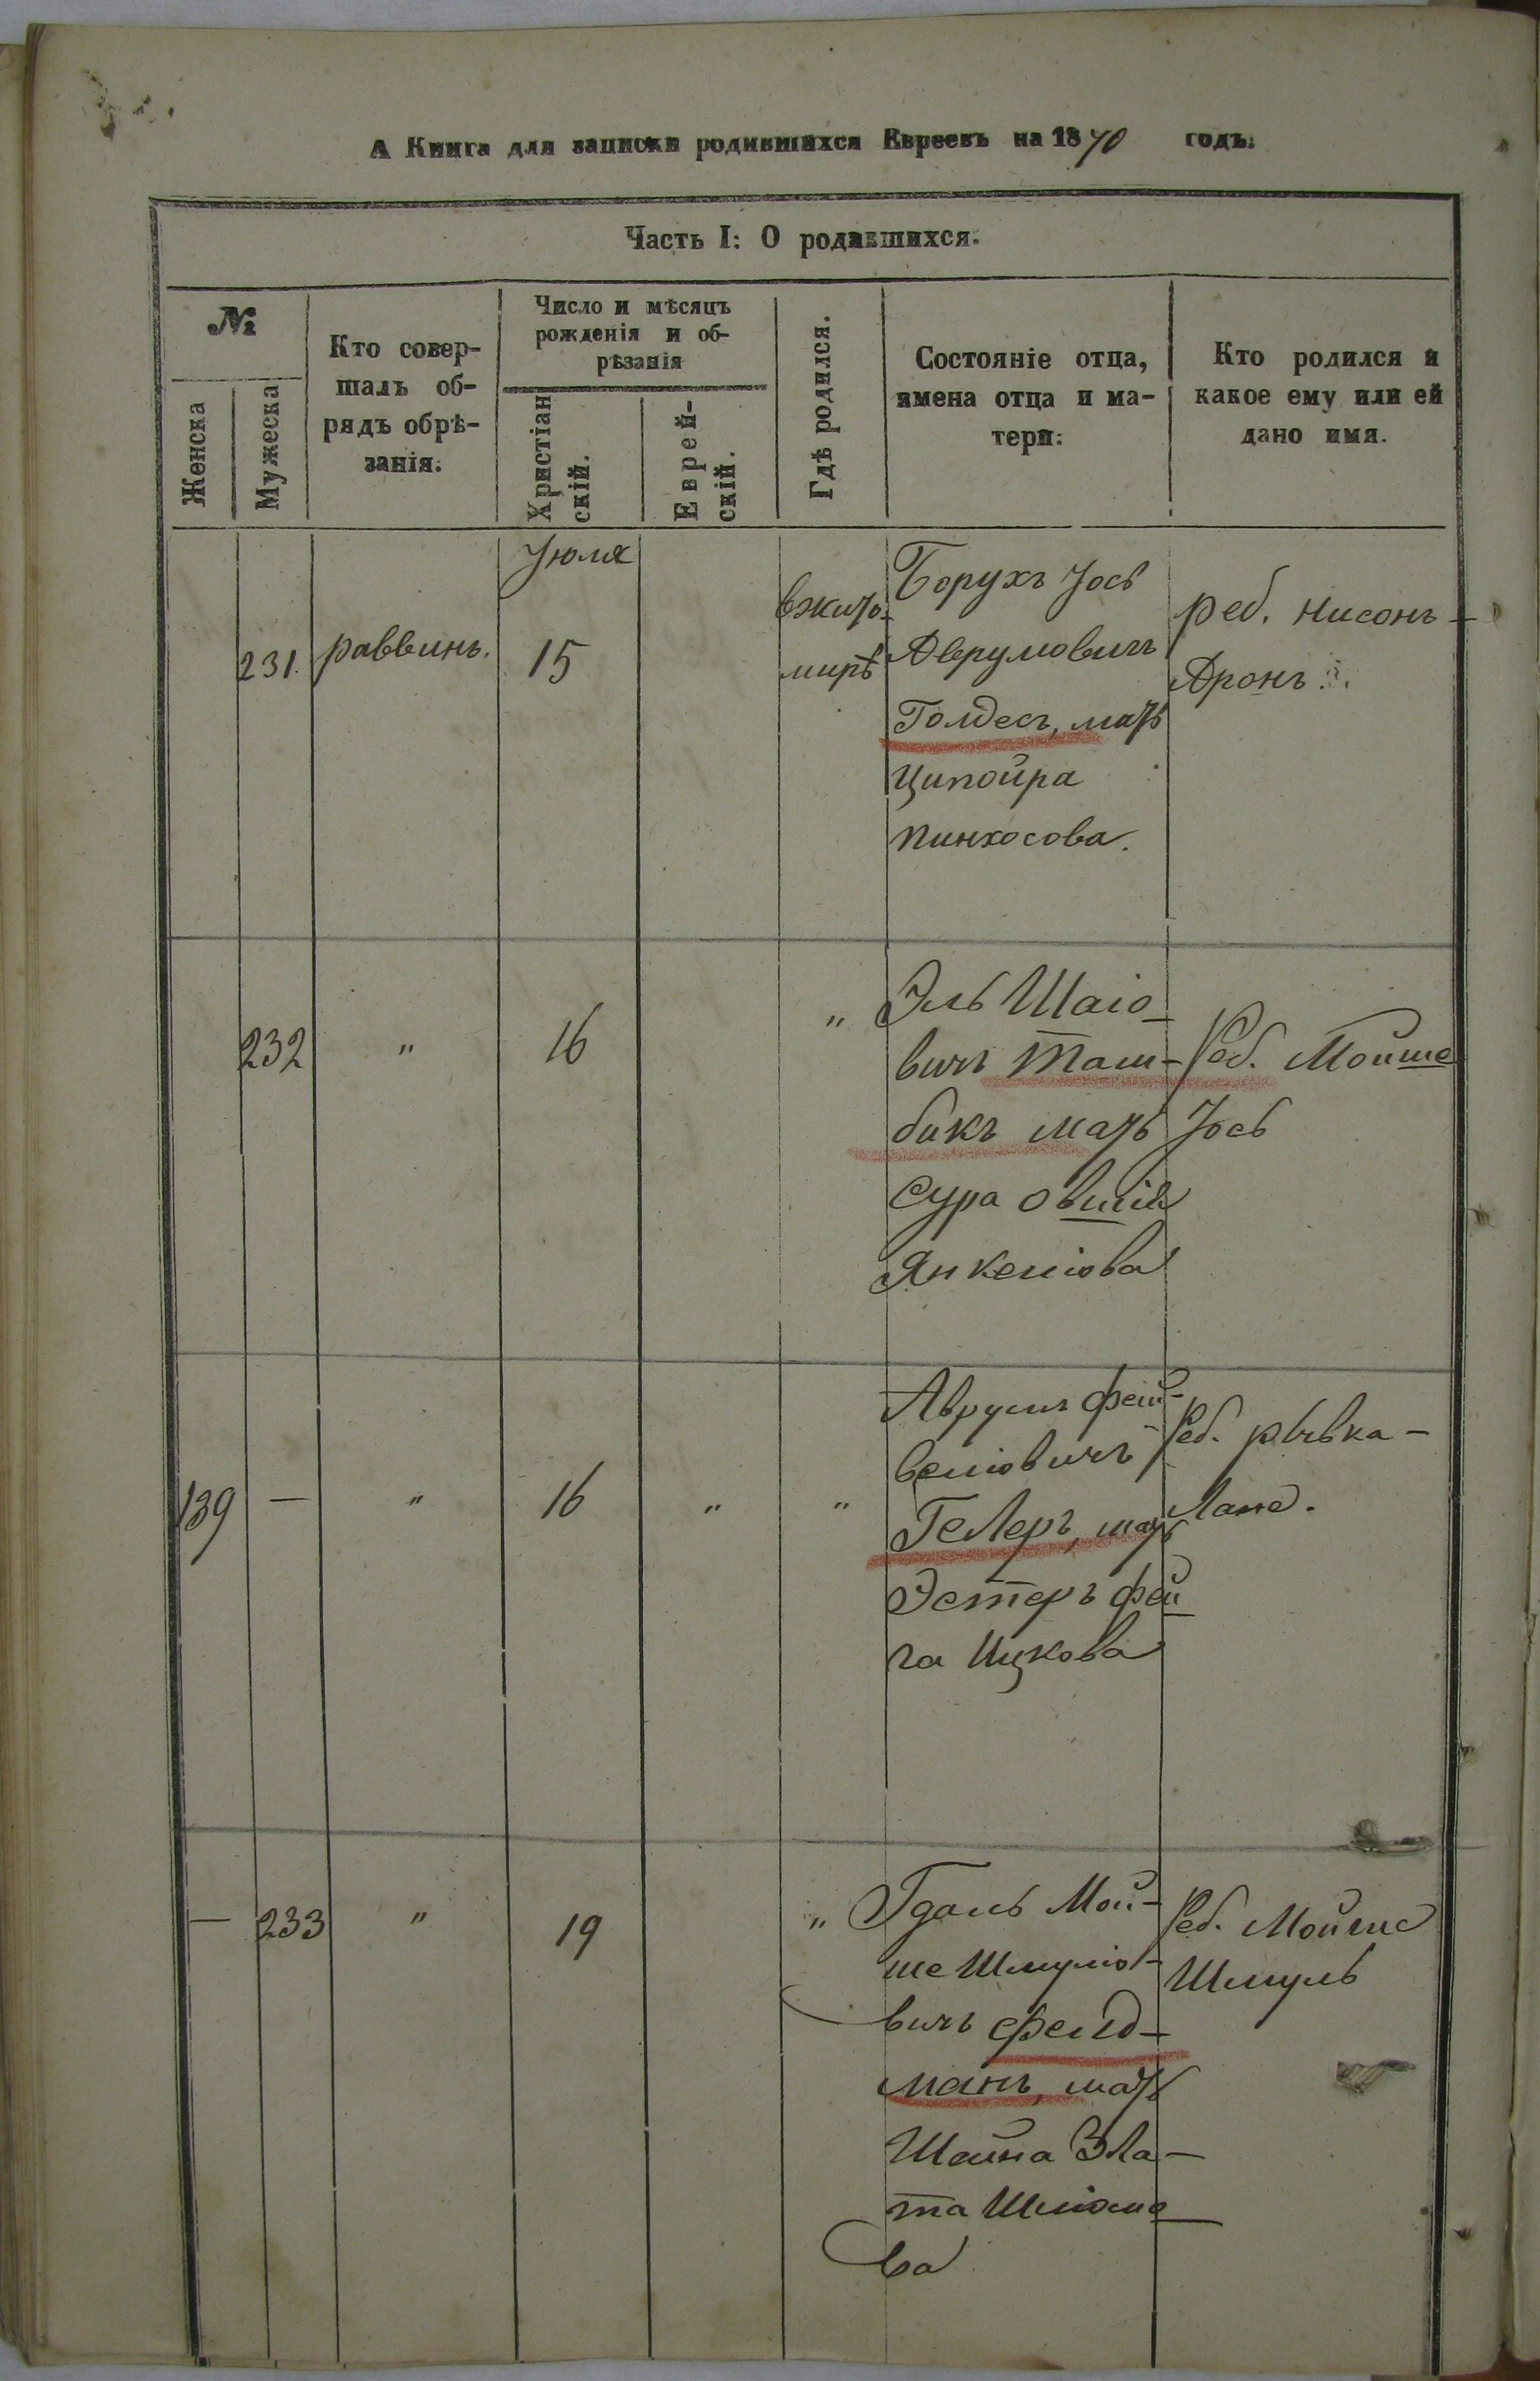 А Книга для записки родившихся Евреевъ на 1870 годъ.
Часть I: О родившихся.
№
Женска
Мужеска
Кто совер-
шалъ об-
рядъ обрѣ-
занія.
Число и мѣсяцъ
рожденія и об-
рѣзанія
Христіан
скій.
Еврей-
скій.
Гдѣ родился.
Состояніе отца,
имена отца и ма-
тери.
Кто родился и
какое ему или ей
дано имя.
Іюля
231.
раввинъ.
15
вжито-
мирѣ
Борухъ Іось
Аврумовичъ
Голдесъ, мать
Ципойра
Пинхосова.
реб. Нисонъ-
Аронъ
232
"
16
"
Эль Шаіо-
вичъ Таш-
бикъ мать
Сура Овшія
Янкеліова
Реб. Мойше
Іось
139
—
"
16
"
"
Аврумъ Фей-
веліовичъ
Гелеръ, мать
Эстеръ Фей-
га Ицкова
Реб. рывка-
Лане.
—
233
"
19
"
Гдаль Мой-
ше Шмуліо-
вичъ Фелд-
манъ, мать
Шейна Зла-
та Шліомо-
ва
Реб. Мойше
Шмуль